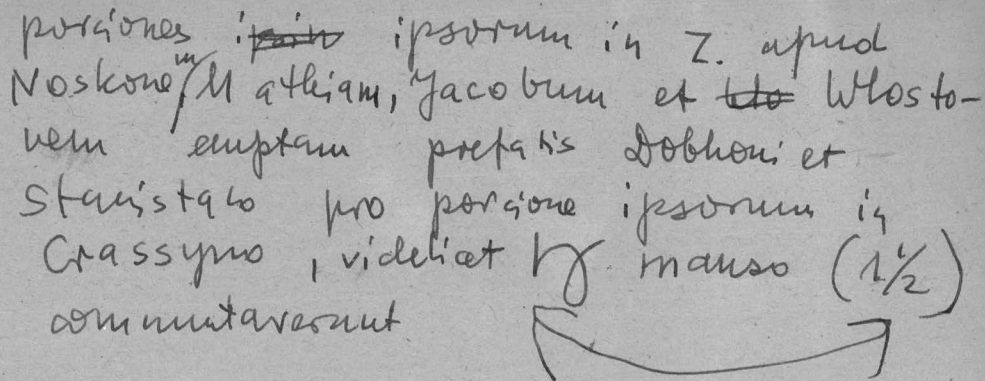 porciones ipsorum in Z. apud
Noskonem, Mathiam, Jacobum et Wlosto-
nem emptam prefatis Dobkoni et
Stanislao pro porcione ipsorum in
Crassyno, videlicet manso (1 1/2)
commutaverunt